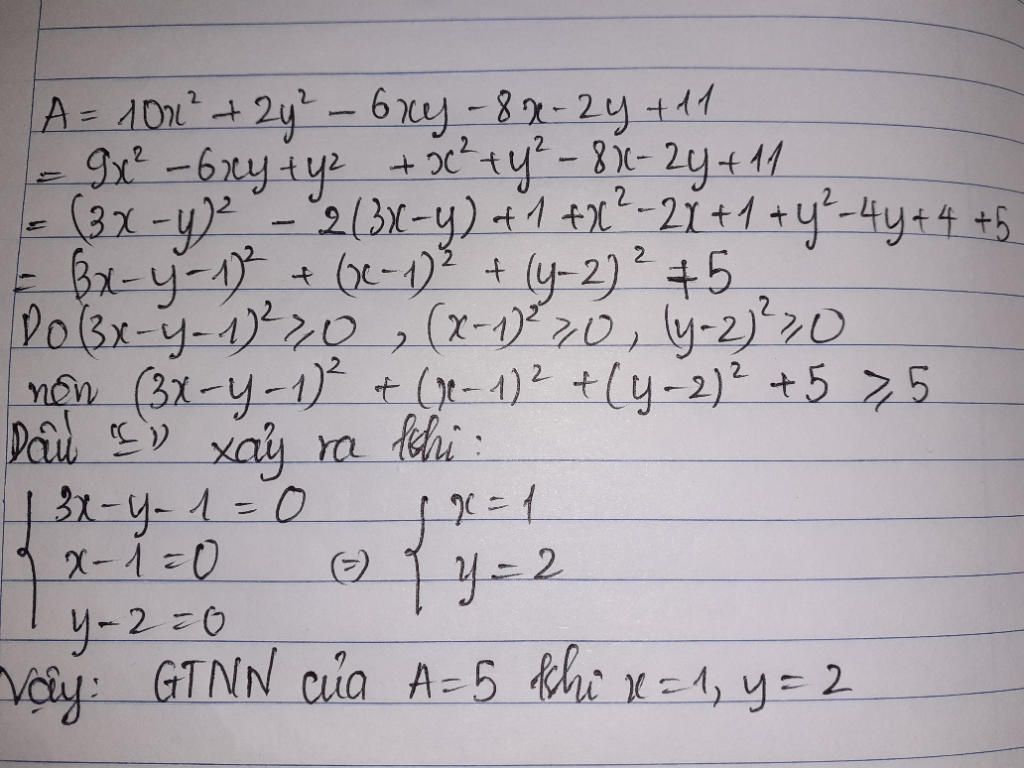 A = 10x² + 2y² – 6xy – 8x – 2y + 11
= 9x² – 6xy + y² + x² + y² – 8x – 2y + 11
= (3x – y)² – 2(3x – y) + 1 + x² – 2x + 1 + y² – 4y + 4 + 5
= (3x – y – 1)² + (x – 1)² + (y – 2)² + 5
Do (3x – y – 1)² ⩾ 0 , (x – 1)² ⩾ 0 , (y – 2)² ⩾ 0
nên (3x – y – 1)² + (x – 1)² + (y – 2)² + 5 ⩾ 5
Dấu "=" xảy ra khi :
{ 3x – y – 1 = 0
x – 1 = 0
y – 2 = 0
(=) { x = 1
y = 2
Vậy: GTNN của A = 5 khi x = 1, y = 2